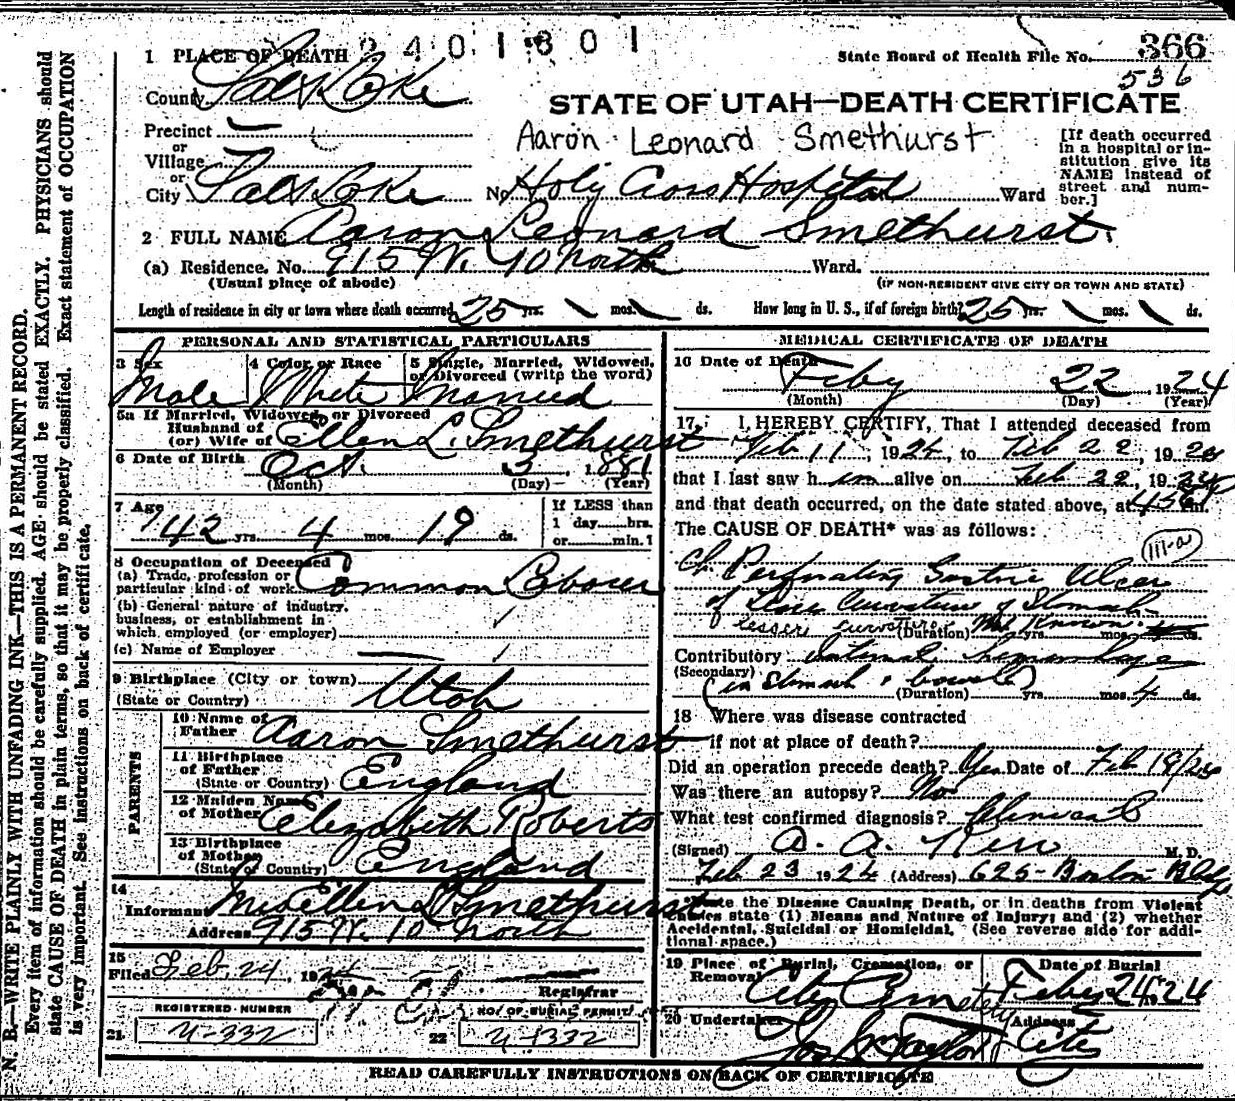 2401801
State Board of Health File No. 366
536
1 PLACE OF DEATH
County Salt Lake
STATE OF UTAH—DEATH CERTIFICATE
Precinct
or
Village
or
City Salt Lake No. Holy Cross Hospital Ward
Aaron Leonard Smethurst
[If death occurred in a hospital or institution give its NAME instead of street and number.]
2 FULL NAME Aaron Leonard Smethurst.
(a) Residence. No. 915 W. 10 North Ward.
(Usual place of abode) (IF NON-RESIDENT GIVE CITY OR TOWN AND STATE)
Length of residence in city or town where death occurred 25 yrs. mos. ds. How long in U. S., if of foreign birth? 25 yrs. mos. ds.
PERSONAL AND STATISTICAL PARTICULARS
3 Sex 4 Color or Race 5 Single, Married, Widowed, or Divorced (write the word)
Male White Married
5a If Married, Widowed, or Divorced
Husband of
(or) Wife of Ellen L. Smethurst
6 Date of Birth Oct. 3 1881
(Month) (Day) (Year)
7 Age 42 yrs. 4 mos. 19 ds.
If LESS than
1 day hrs.
or min.?
8 Occupation of Deceased
(a) Trade, profession or
particular kind of work Common Laborer
(b) General nature of industry,
business, or establishment in
which employed (or employer)
(c) Name of Employer
9 Birthplace (City or town)
(State or Country) Utah
PARENTS
10 Name of
Father Aaron Smethurst
11 Birthplace
of Father
(State or Country) England
12 Maiden Name
of Mother Elizabeth Roberts
13 Birthplace
of Mother
(State or Country) England
14
Informant Mrs Ellen L Smethurst
Address 915 W. 10 North
15
Filed Feb, 24, 19
Registrar
REGISTERED NUMBER NO. OF BURIAL PERMIT
21 4-332 22 4-332
MEDICAL CERTIFICATE OF DEATH
16 Date of Death Feby 22 1924
(Month) (Day) (Year)
17. I HEREBY CERTIFY, That I attended deceased from
Feb 11, 1924, to Feb 22, 1924
that I last saw h im alive on Feb 22, 1924
and that death occurred, on the date stated above, at m.
The CAUSE OF DEATH* was as follows:
III-a
Ch. Perforating Gastric Ulcer
of Curvature of Stomach
lesser curvature (Duration) Not Known yrs. mos. ds.
Contributory Internal hemorrhage
(Secondary) (in Stomach & bowels)
(Duration) yrs. mos. 4 ds.
18 Where was disease contracted
if not at place of death?
Did an operation precede death? Yes Date of Feb 19/24
Was there an autopsy? No
What test confirmed diagnosis? Clinical
(Signed) A. A. Kerr M. D.
Feb 23 1924 (Address) 625-Boston Bldg
*State the Disease Causing Death, or in deaths from Violent
Causes state (1) Means and Nature of Injury; and (2) whether
Accidental, Suicidal or Homicidal. (See reverse side for addi-
tional space.)
19 Place of Burial, Cremation, or
Removal City Cemetery
Date of Burial
Feby 24, 24
20 Undertaker Jos Wm Taylor
Address City
READ CAREFULLY INSTRUCTIONS ON BACK OF CERTIFICATE
N. B.—WRITE PLAINLY WITH UNFADING INK—THIS IS A PERMANENT RECORD.
Every item of information should be carefully supplied. AGE should be stated EXACTLY. PHYSICIANS should
state CAUSE OF DEATH in plain terms, so that it may be properly classified. Exact statement of OCCUPATION
is very important. See instructions on back of certificate.